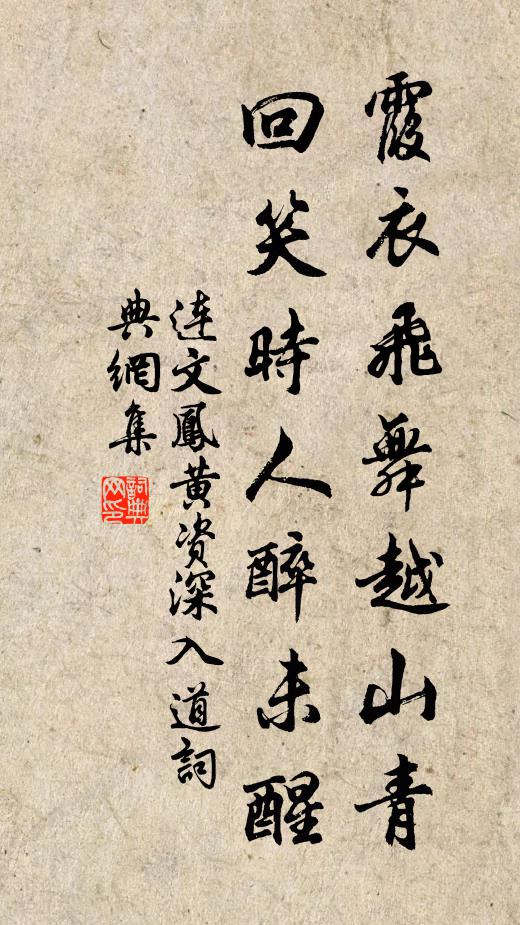 霞衣飛舞越山青
回笑時人醉未醒
连文鳳黄资深入道詞
典網集
詞典网印